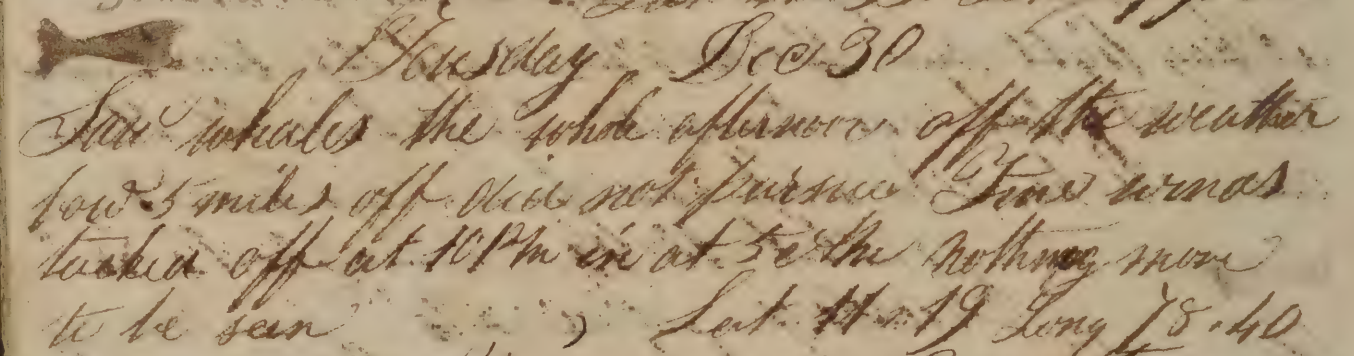 Thursday Dec 30
Saw whales the whole afternoon off the weather
bow 5 miles off did not pursue Fine winds
tacked off at 10 PM in at 5 nothing more
to be seen Lat 11.19 Long 78.40